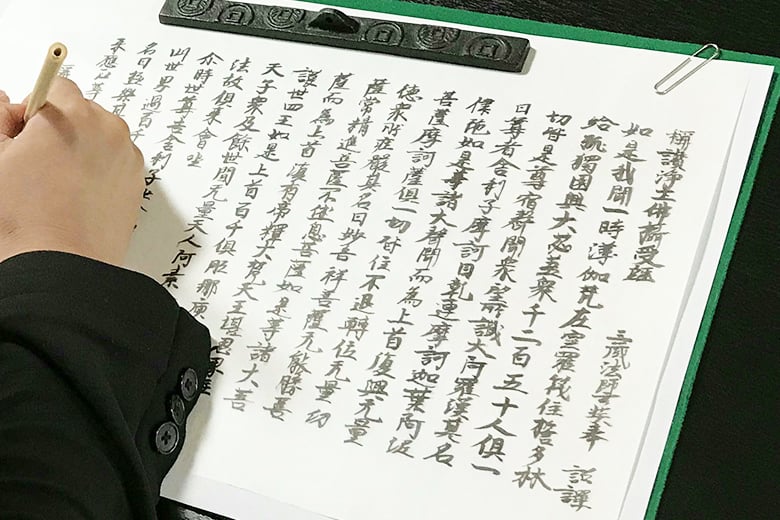 稱讚淨土佛攝受經 三藏法師玄奘奉 詔譯
如是我聞一時薄伽梵在室羅筏住誓多林
給孤獨園與大苾芻眾千二百五十人俱一
切皆是尊宿聲聞眾望所識大阿羅漢其名
曰尊者舍利子摩訶目乾連摩訶迦葉阿泥
律陀如是等諸大聲聞而為上首復與無量
菩薩摩訶薩俱一切皆住不退轉位无量功
德眾所莊嚴其名曰妙吉祥菩薩无能勝菩
薩常精進菩薩不休息菩薩如是等諸大菩
薩而為上首復有帝釋大梵天王堪忍界主
護世四王如是上首百千俱胝那庾
天子眾及餘世間无量天人阿素
法故俱來會坐
尒時世尊告舍利子
山世界過百千
名曰極樂